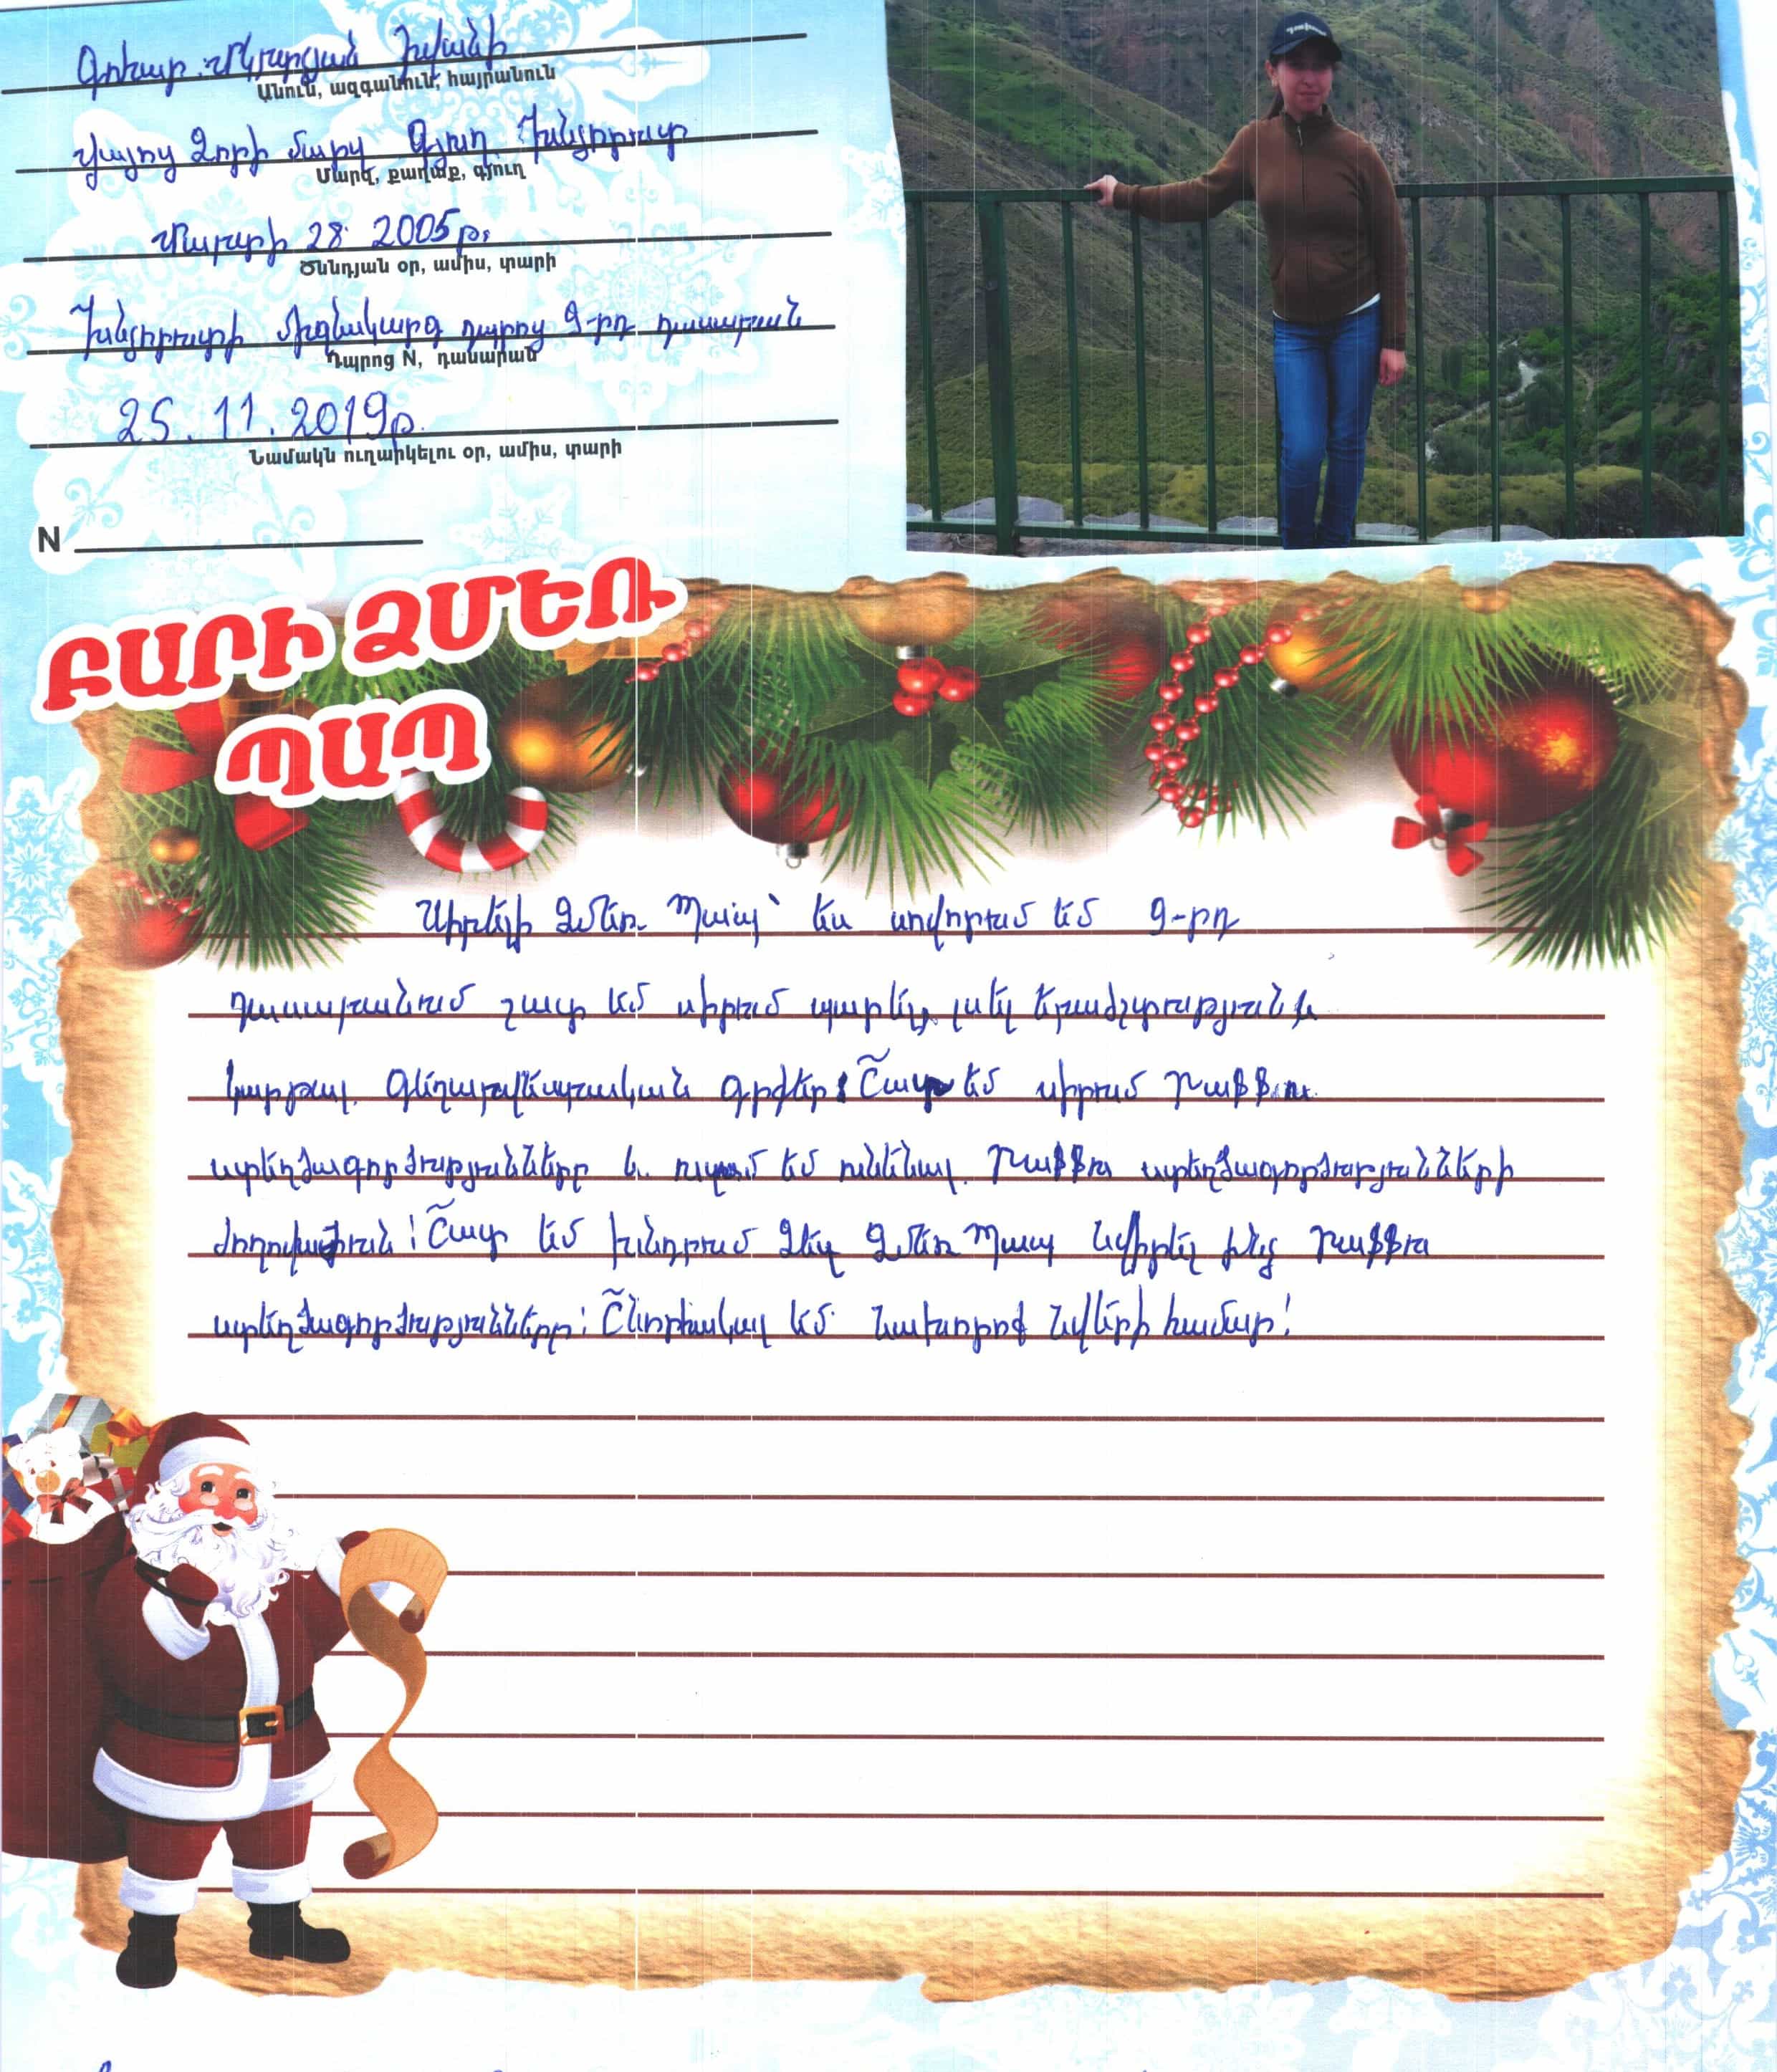 Գոհար Մկրտչյան Իշխանի
Անուն, ազգանուն, հայրանուն
Վայոց Ձորի մարզ Գյուղ Խնձորուտ
Մարզ, քաղաք, գյուղ
Մարտի 28 2005թ.
Ծննդյան օր, ամիս, տարի
Խնձորուտի միջնակարգ դպրոց 9-րդ դասարան
Դպրոց N, դասարան
25.11.2019թ.
Նամակն ուղարկելու օր, ամիս, տարի
N
ԲԱՐԻ ՁՄԵՌ
ՊԱՊ
Սիրելի Ձմեռ Պապ՝ ես սովորում եմ 9-րդ
դասարանում շատ եմ սիրում պարել, լսել երաժշտություն և
կարդալ գեղարվեստական գրքեր: Շատ եմ սիրում Րաֆֆու
ստեղծագործությունները և ուզում եմ ունենալ Րաֆֆու ստեղծագործությունների
ժողովածուն: Շատ եմ խնդրում Ձեզ Ձմեռ Պապ նվիրել ինձ Րաֆֆու
ստեղծագործությունները: Շնորհակալ եմ նախորդ նվերի համար: